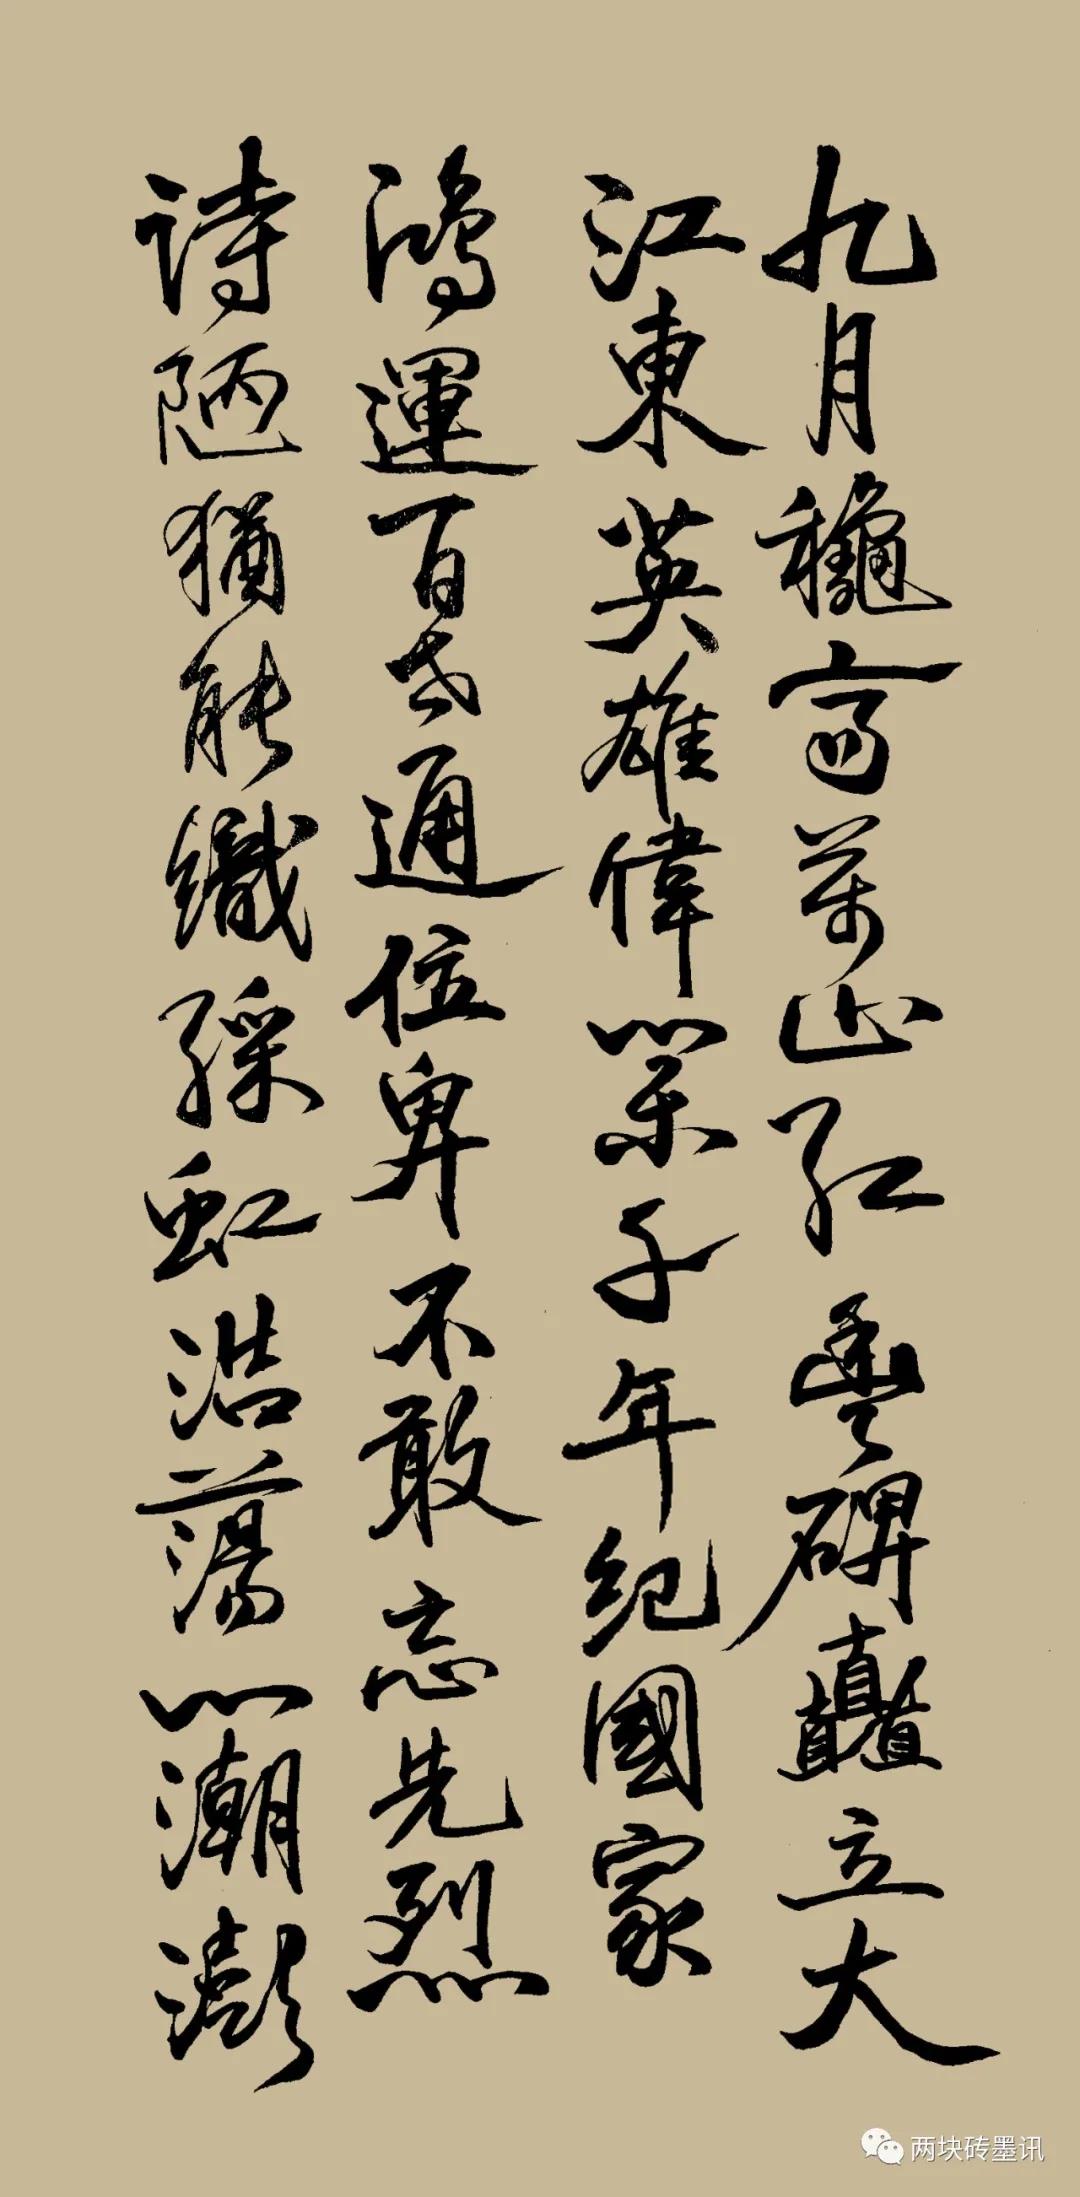 九月龝高萬山紅豐碑矗立大
江東英雄偉業千年紀國家
鴻運百世通位卑不敢忘先烈
詩陋猶能織綵虹浩蕩心潮澎
两块砖墨讯